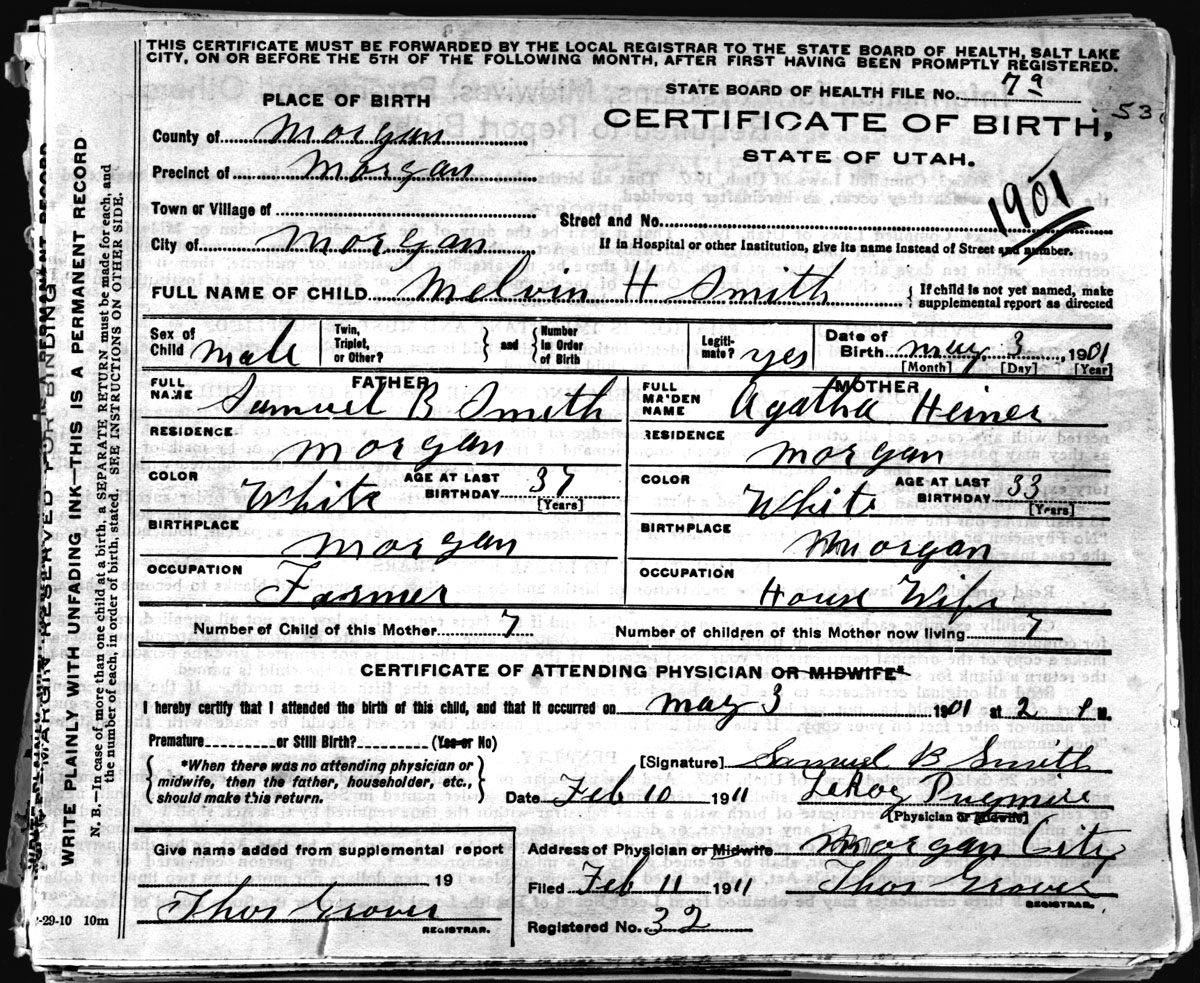 THIS CERTIFICATE MUST BE FORWARDED BY THE LOCAL REGISTRAR TO THE STATE BOARD OF HEALTH, SALT LAKE
CITY, ON OR BEFORE THE 5TH OF THE FOLLOWING MONTH, AFTER FIRST HAVING BEEN PROMPTLY REGISTERED.
STATE BOARD OF HEALTH FILE No. 7a
53
CERTIFICATE OF BIRTH,
STATE OF UTAH.
1901
PLACE OF BIRTH
County of Morgan
Precinct of Morgan
Town or Village of
Street and No.
City of Morgan
If in Hospital or other Institution, give its name instead of Street and number.
FULL NAME OF CHILD Melvin H Smith { If child is not yet named, make supplemental report as directed
Sex of Child male Twin, Triplet, or Other? } and { Number in Order of Birth Legiti-mate? yes Date of Birth May 3, 1901
[Month] [Day] [Year]
FATHER
FULL NAME Samuel B Smith
RESIDENCE Morgan
COLOR White AGE AT LAST BIRTHDAY 37 [Years]
BIRTHPLACE Morgan
OCCUPATION Farmer
MOTHER
FULL MAIDEN NAME Agatha Heiner
RESIDENCE Morgan
COLOR White AGE AT LAST BIRTHDAY 33 [Years]
BIRTHPLACE Morgan
OCCUPATION House Wife
Number of Child of this Mother 7 Number of children of this Mother now living 7
CERTIFICATE OF ATTENDING PHYSICIAN OR MIDWIFE*
I hereby certify that I attended the birth of this child, and that it occurred on May 3 1901 at 2 P M.
Premature or Still Birth? (Yes or No)
*When there was no attending physician or
midwife, then the father, householder, etc.,
should make this return.
[Signature] Samuel B Smith
Date Feb 10 1911 LeRoy Pugmire
[Physician or Midwife]
Address of Physician or Midwife Morgan City
Filed Feb 11 1911 Thos Grover
REGISTRAR.
Registered No. 32
Give name added from supplemental report
19
Thos Grover
REGISTRAR.
-29-10 10m
MARGIN RESERVED FOR BINDING
WRITE PLAINLY WITH UNFADING INK—THIS IS A PERMANENT RECORD
N. B.—In case of more than one child at a birth, a SEPARATE RETURN must be made for each, and
the number of each, in order of birth, stated. SEE INSTRUCTIONS ON OTHER SIDE.